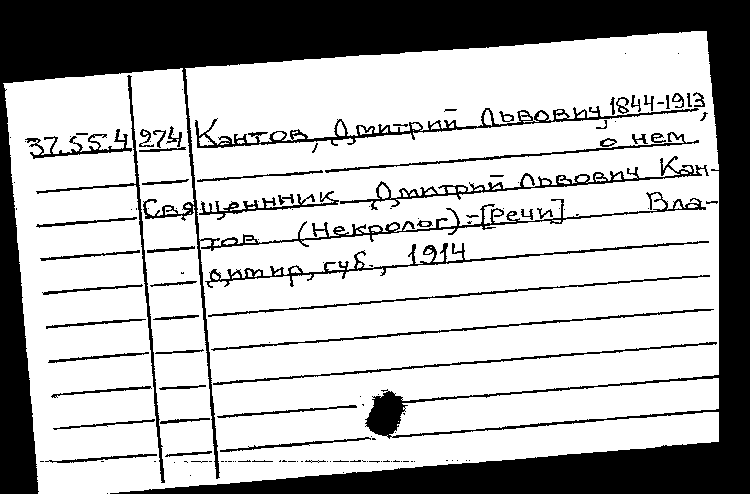 37.55.4 274 Кантов, Дмитрий Львович, 1844-1913,
о нем.
Священник Дмитрий Львович Кан-
тов (Некролог):=[Речи]. Вла-
димир, губ., 1914